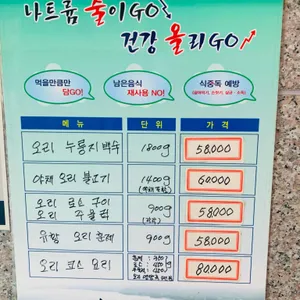 나트륨 줄이GO
건강 올리GO
먹을만큼만 담GO!
남은음식 재사용 NO!
식중독 예방
메뉴 단위 가격
오리 누룽지백숙 1800g 58,000
야채 오리 불고기 1400g 60,000
오리 로스 구이
오리 주물럭 900g 58,000
유황 오리 훈제 900g 58,000
오리 코스 요리 80,000